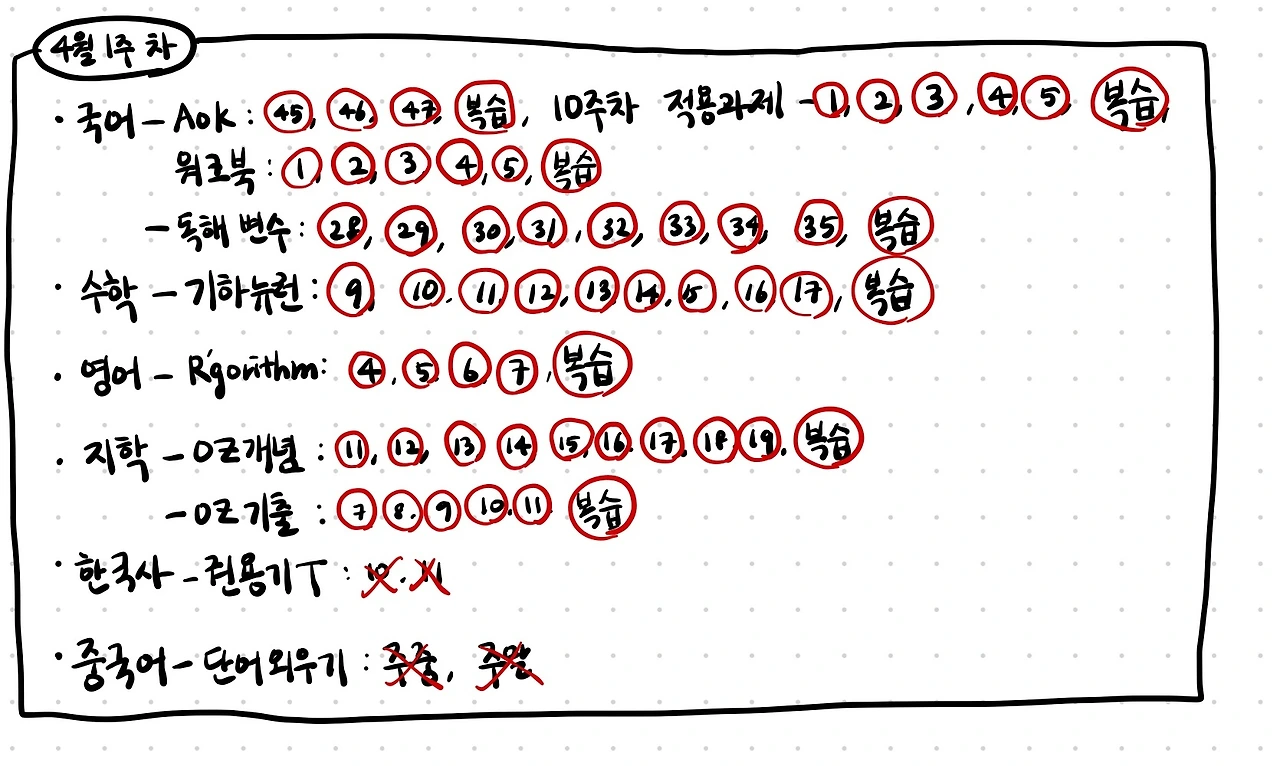 4월 1주 차
· 국어 - Aok : 45, 46, 47, 복습, 10주차 적용과제 - 1, 2, 3, 4, 5 복습,
워크북 : 1, 2, 3, 4, 5, 복습
- 독해 변수 : 28, 29, 30, 31, 32, 33, 34, 35, 복습
· 수학 - 기하뉴런 : 9, 10. 11, 12, 13, 14, 15, 16, 17, 복습
· 영어 - R'gorithm : 4, 5, 6, 7, 복습
· 지학 - OZ개념 : 11, 12, 13, 14, 15, 16. 17. 18. 19. 복습
- OZ기출 : 7 8. 9 10. 11. 복습
· 한국사 - 권용기T : 10. 11
· 중국어 - 단어외우기 : 주중, 주말